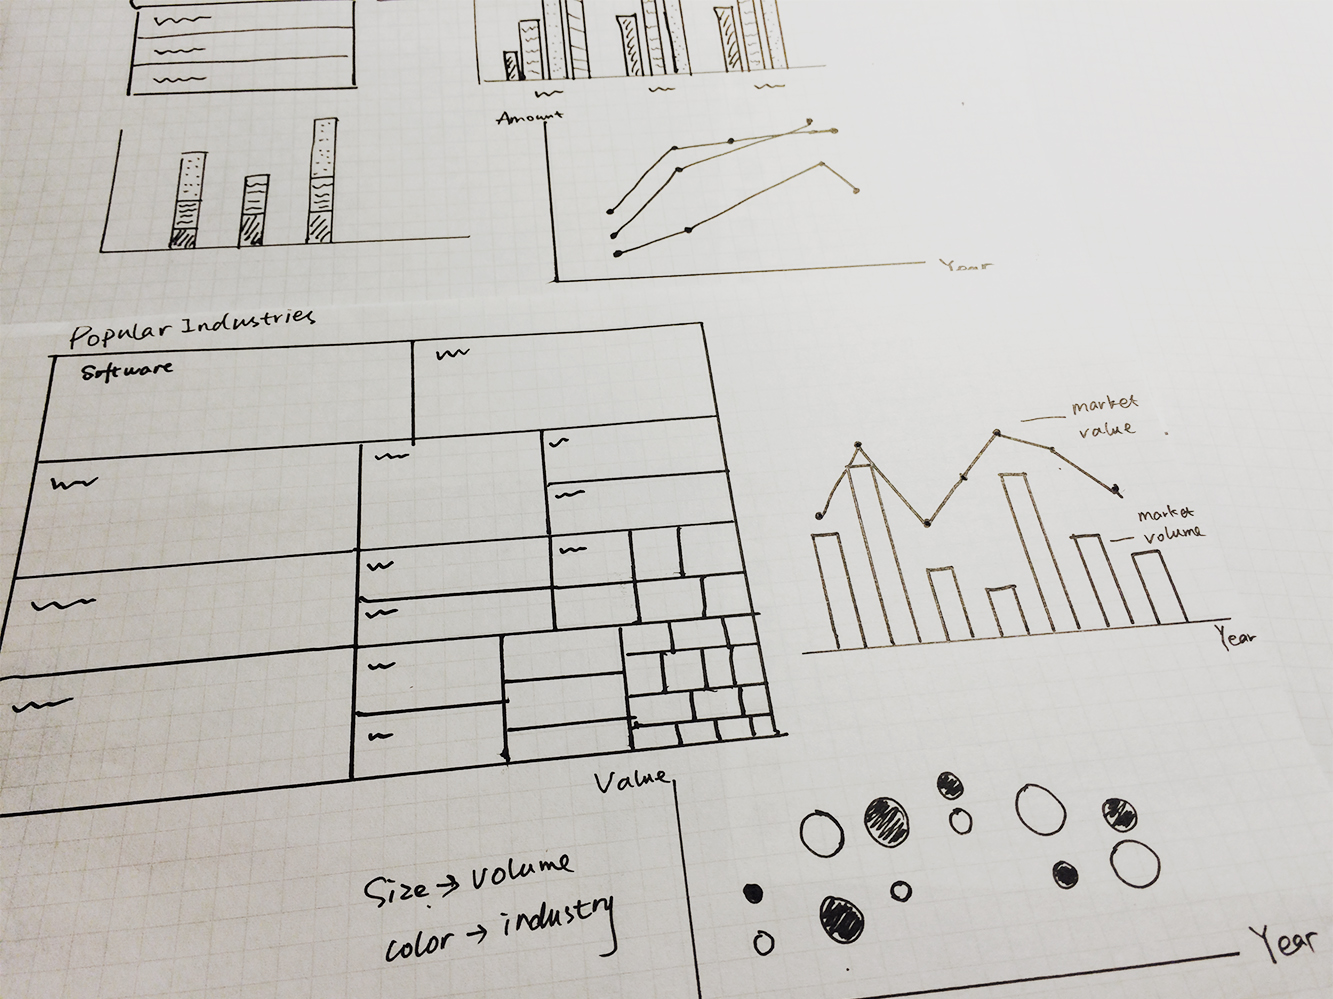 Amount
Year
Popular Industries
Software
market
value
market
volume
Year
Value
Size → volume
color → industry
Year